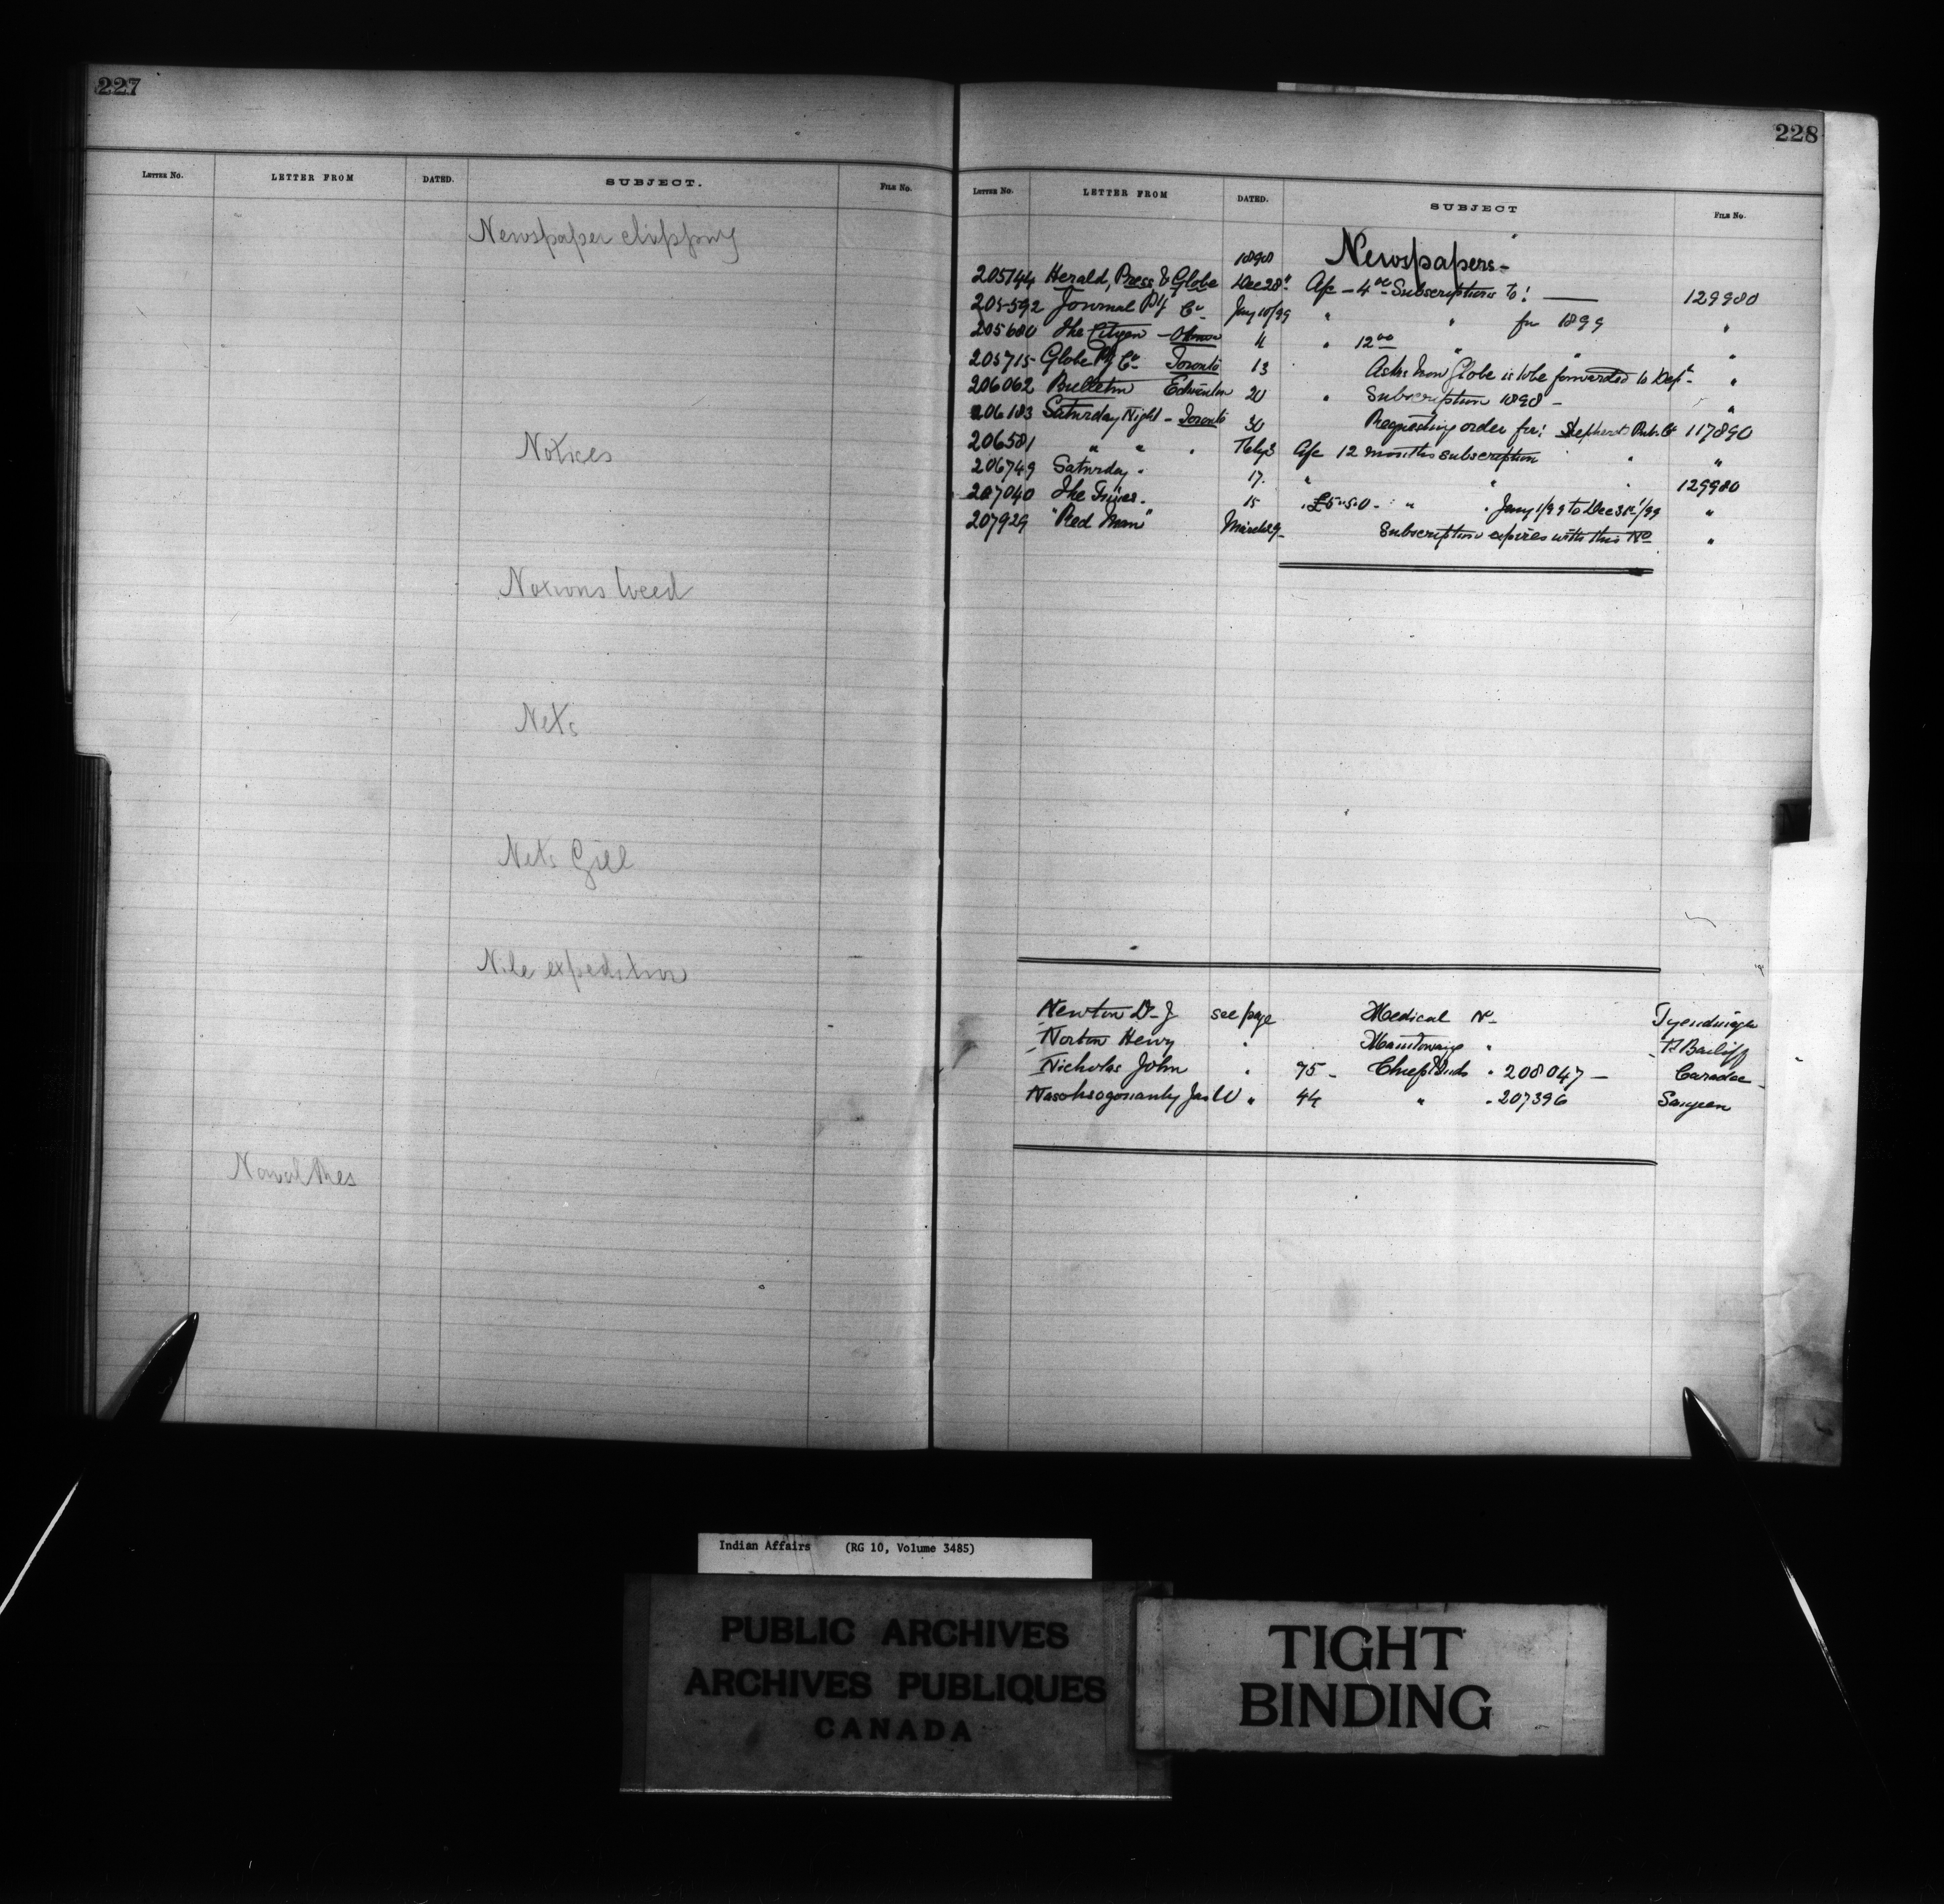 227
LETTER NO. LETTER FROM DATED. SUBJECT. FILE No.
Newspaper clipping
Notices
Noxious Weed
Nets
Nets Gill
Nile expedition
228
LETTER NO. LETTER FROM DATED. SUBJECT FILE No.
1898 Newspapers-
205144 Herald, Press & Globe Dec 28" A/c - 4 00 Subscriptions to! 129980
205592 Journal Ptg Co Jany 10/99 " " for 1899 "
205680 The Citizen - Ottawa 11 " 12 00 " " "
205715 Globe Ptg Co Toronto 13 Asks how Globe is to be forwarded to Dept - "
206062 Bulletin Edmonton 20 " Subscription 1898 - "
206183 Saturday Night - Toronto 30 Requesting order for! Shepherd Pub. Co 117890
206581 " " " Feby 3 A/c 12 months subscription " "
206749 Saturday " 17. " " " 129980
207040 The Times. 15 " £5.5.0 - " " Jany 1/99 to Dec 31st/99 "
207929 "Red Man" March 29 - Subscription expires with this No "
Newton Dr J see page Medical No Tyendinaga
Norton Henry " Manitowaning " Bailiff
Nicholas John " 75 - Chief Inds " 208047 - Caradoc -
Jas W " 44 " " 207396 Saugeen
Indian Affairs (RG 10, Volume 3485)
PUBLIC ARCHIVES
ARCHIVES PUBLIQUES
CANADA
TIGHT
BINDING